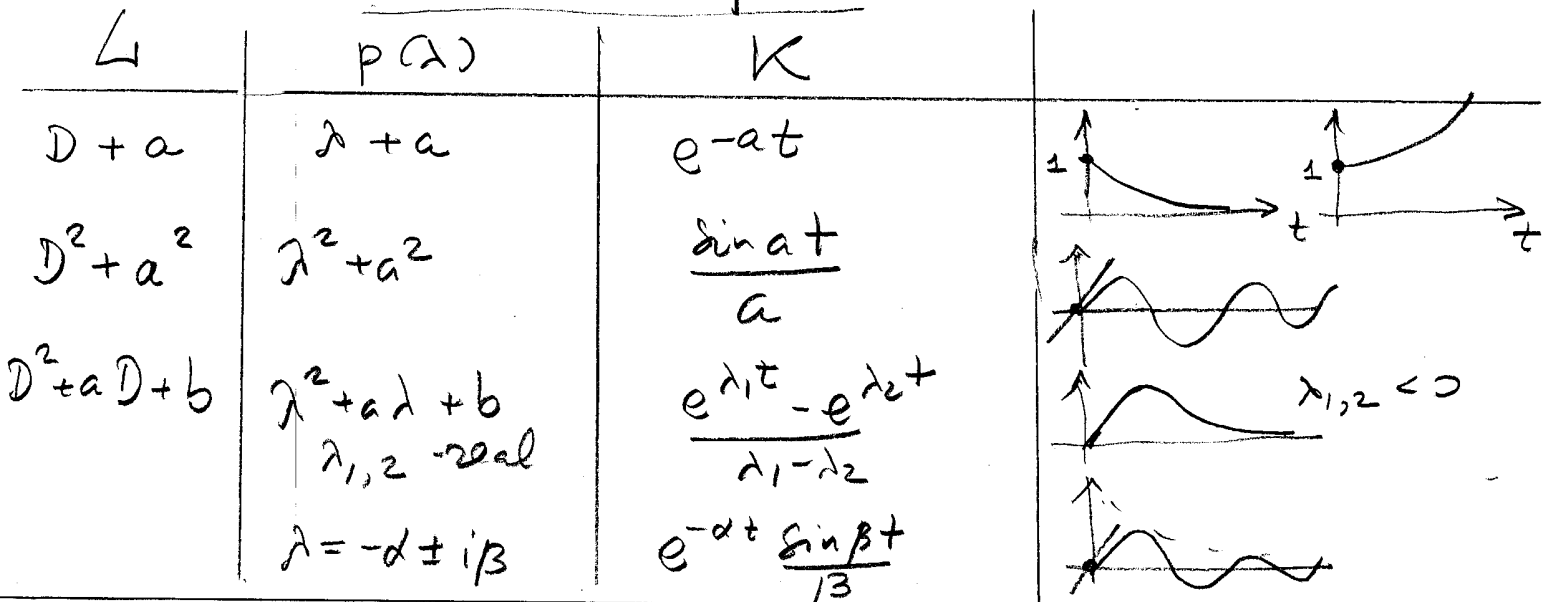 L p(λ) K
D + a λ + a e^{-at} 1 t 1 t
D² + a² λ² + a² \frac{sin at}{a}
D² + aD + b λ² + aλ + b \frac{e^{λ₁t} - e^{λ₂t}}{λ₁ - λ₂} λ₁,₂ < 0
λ₁,₂ - real
λ = -α ± iβ e^{-αt} \frac{sin βt}{β}